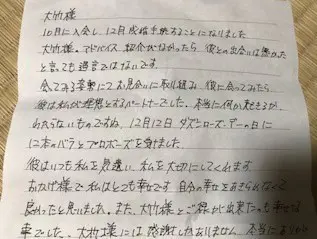 大竹様
10月に入会し、12月成婚手続きすることになりました
大竹様のアドバイス、紹介がなかったら、彼との出会いは無かった
と言っても過言ではないです。
会ってみる姿勢にてお見合いに取り組み、彼に会ってみたら
彼は私が理想とするパートナーでした。本当に何か起きるか
わからないものですね、12月12日ダズンローズデーの日に
12本のバラとプロポーズを受けました。
彼はいつも私を気遣い、私を大切にしてくれます
おかげ様で私はとても幸せです 自分の幸せをあきらめなくて
良かったと思いました。また、大竹様とご縁が出来たのも幸せな
事でした。大竹様には感謝しかありません。本当にありが